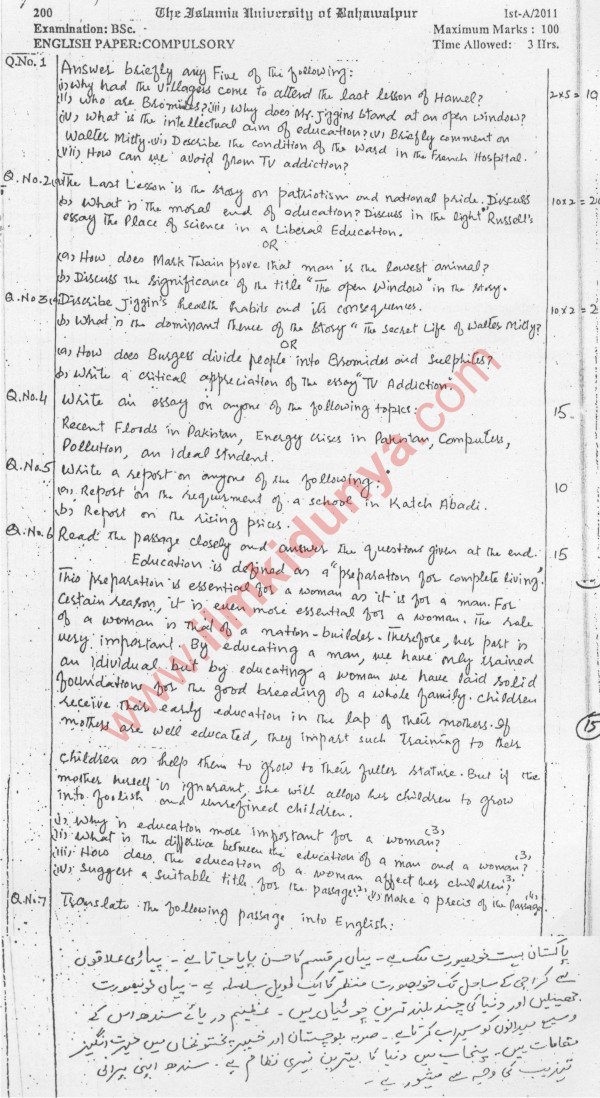 200 The Islamia University of Bahawalpur Ist-A/2011
Examination: BSc. Maximum Marks : 100
ENGLISH PAPER:COMPULSORY Time Allowed: 3 Hrs.
Q.No. 1 Answer briefly any Five of the following:
i) Why had the villagers come to attend the last lesson of Hamel? 2x5=10
ii) Who are Bromides? iii) Why does Mr. Jiggins stand at an open window?
iv) What is the intellectual aim of education? (v) Briefly comment on
Walter Mitty. vi) Describe the condition of the ward in the French Hospital.
vii) How can we avoid from TV addiction?
Q. No. 2 (a) The Last Lesson is the story on patriotism and national pride. Discuss
b) What is the moral end of education? Discuss in the light Russell's 10x2=2
essay The Place of science in a Liberal Education.
OR
(a) How does Mark Twain prove that man is the lowest animal?
b) Discuss the significance of the title "The open Window" in the story.
Q. No 3 (a) Discribe Jiggin's health habits and its consequences.
b) What is the dominant theme of the story "The Secret Life of Walter Mitty? 10x2=2
OR
(a) How does Burgess divide people into Bromides and Sulphites?
b) Write a critical appreciation of the essay "TV Addiction".
Q. No.4 Write an essay on anyone of the following topics: 15
Recent Floods in Pakistan, Energy crises in Pakistan, Computers,
Pollution, an ideal student.
Q. No.5 Write a report on anyone of the following.
(a) Report on the requirment of a school in Katch Abadi. 10
b) Report on the rising prices.
Q. No. 6 Read the passage closely and answer the questions given at the end. 15
Education is defined as a "preparation for complete living".
This preparation is essential for a woman as it is for a man. For
certain reason, it is even more essential for a woman. The role
of a woman is that of a nation-builder. Therefore, her part is
very important. By educating a man, we have only trained
an idividual but by educating a woman we have laid solid
foundation for the good breeding of a whole family. Children
receive their early education in the lap of their mothers. If
mothers are well educated, they impart such training to their 15
children as help them to grow to their fuller stature. But if the
mother herself is ignorant, she will allow her children to grow
into foolish and unrefined children.
i) Why is education more important for a woman? (3)
ii) What is the difference between the education of a man and a woman? (3)
iii) How does the education of a woman affect her children? (3)
iv) Suggest a suitable title for the passage. (2) v) Make a precis of the passage. (4)
Q. No. 7 Translate the following passage into English:
پاکستان بہت خوبصورت ملک ہے۔ یہاں ہر قسم کا حسن پایا جاتا ہے۔ پہاڑی علاقوں
سے کراچی کے ساحل تک خوبصورت منظر کا ایک طویل سلسلہ ہے۔ یہاں خوبصورت
جھیلیں اور دنیا کی چند بلند ترین چوٹیاں ہیں۔ عظیم دریائے سندھ اس کے
وسیع میدانوں کو سیراب کرتا ہے۔ صوبہ بلوچستان اور خیبر پختونخواں میں حیرت انگیز
مقامات ہیں۔ پنجاب میں دنیا کا بہترین نہری نظام ہے۔ سندھ اپنی پرانی
تہذیب کی وجہ سے مشہور ہے۔
www.ilmkidunya.com